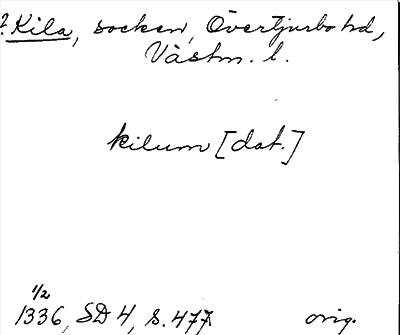 ? Kila, socken, Övertjurbo hd,
Västm. l.
kilum [dat.]
1/2
1336, SD 4, s. 477
orig.